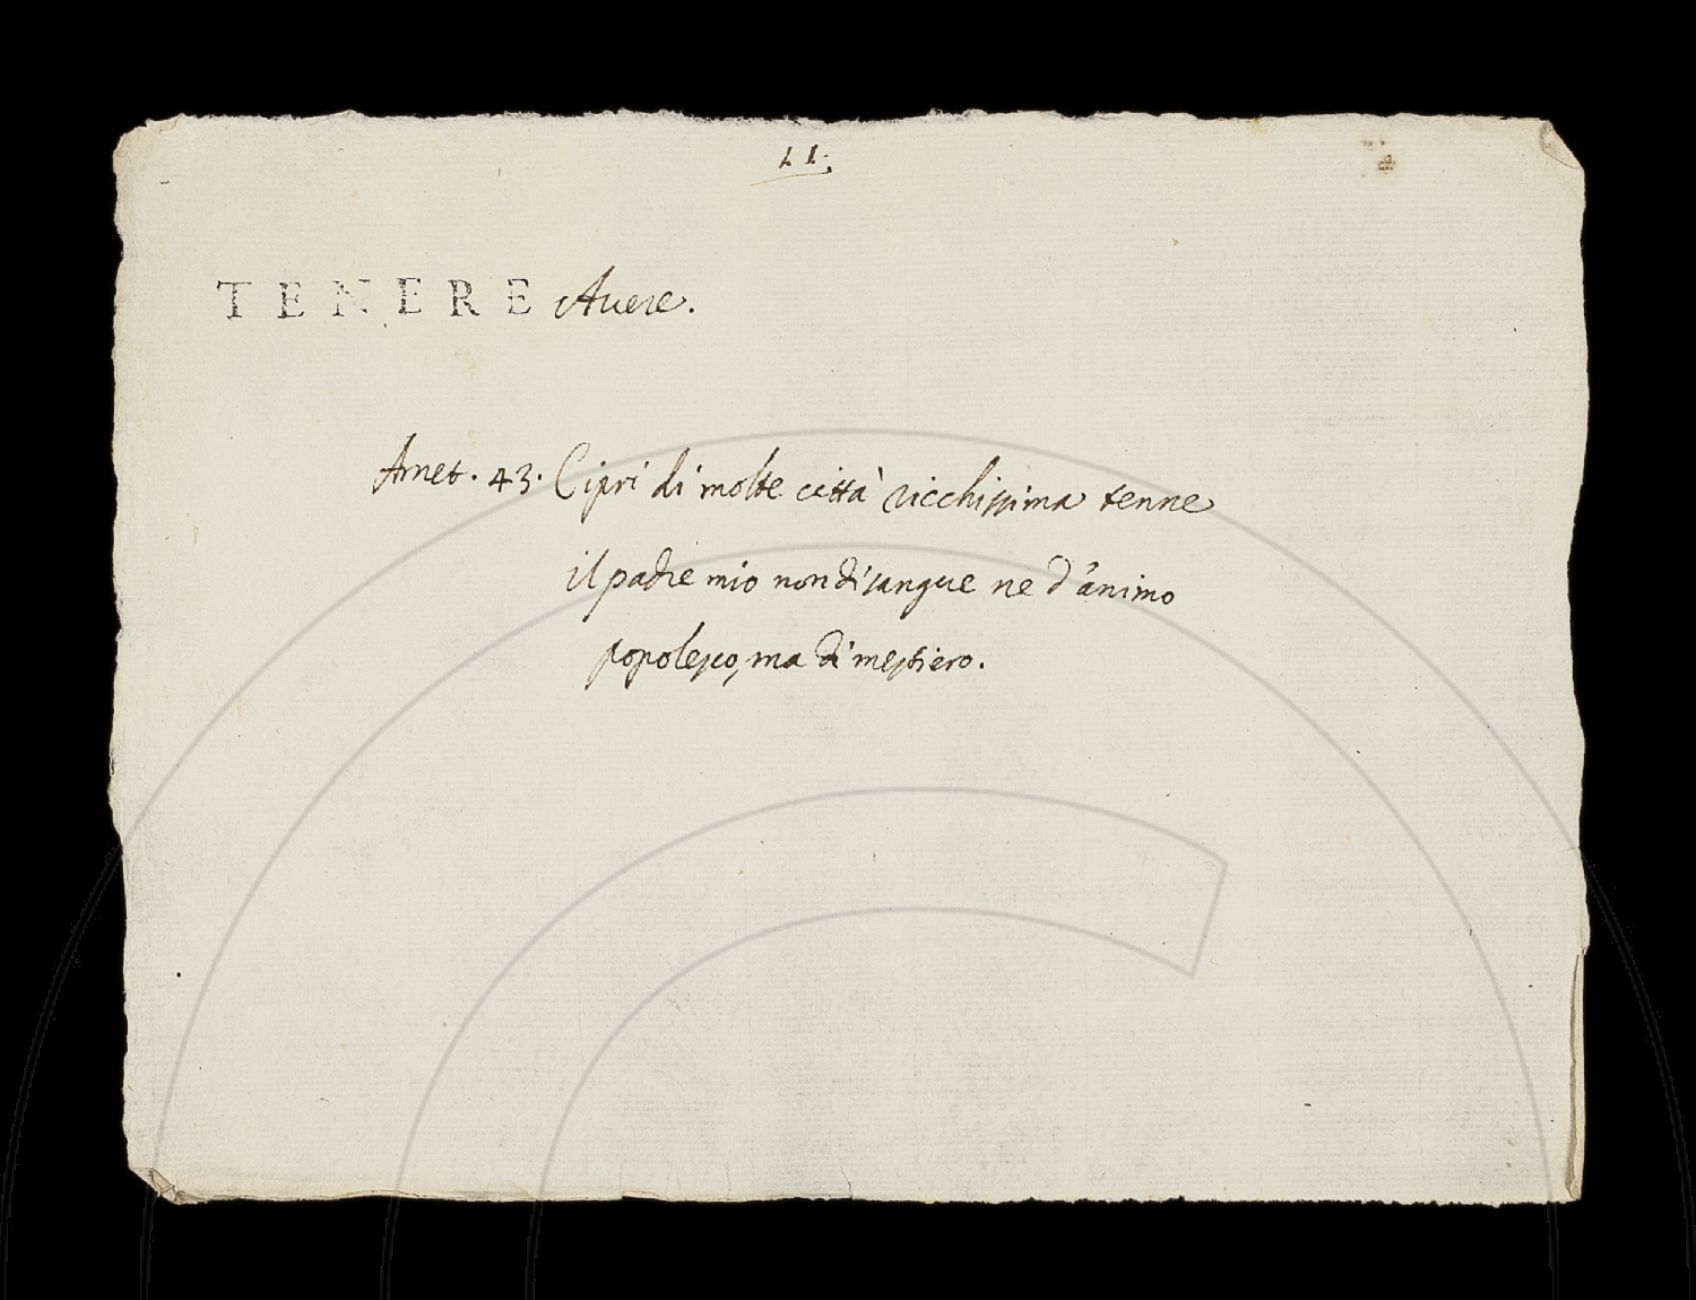 11.
TENERE Avere.
Amet. 43. Cipri di molte città ricchissima tenne
il padre mio non di sangue ne d'animo
popolesco, ma di mestiero.